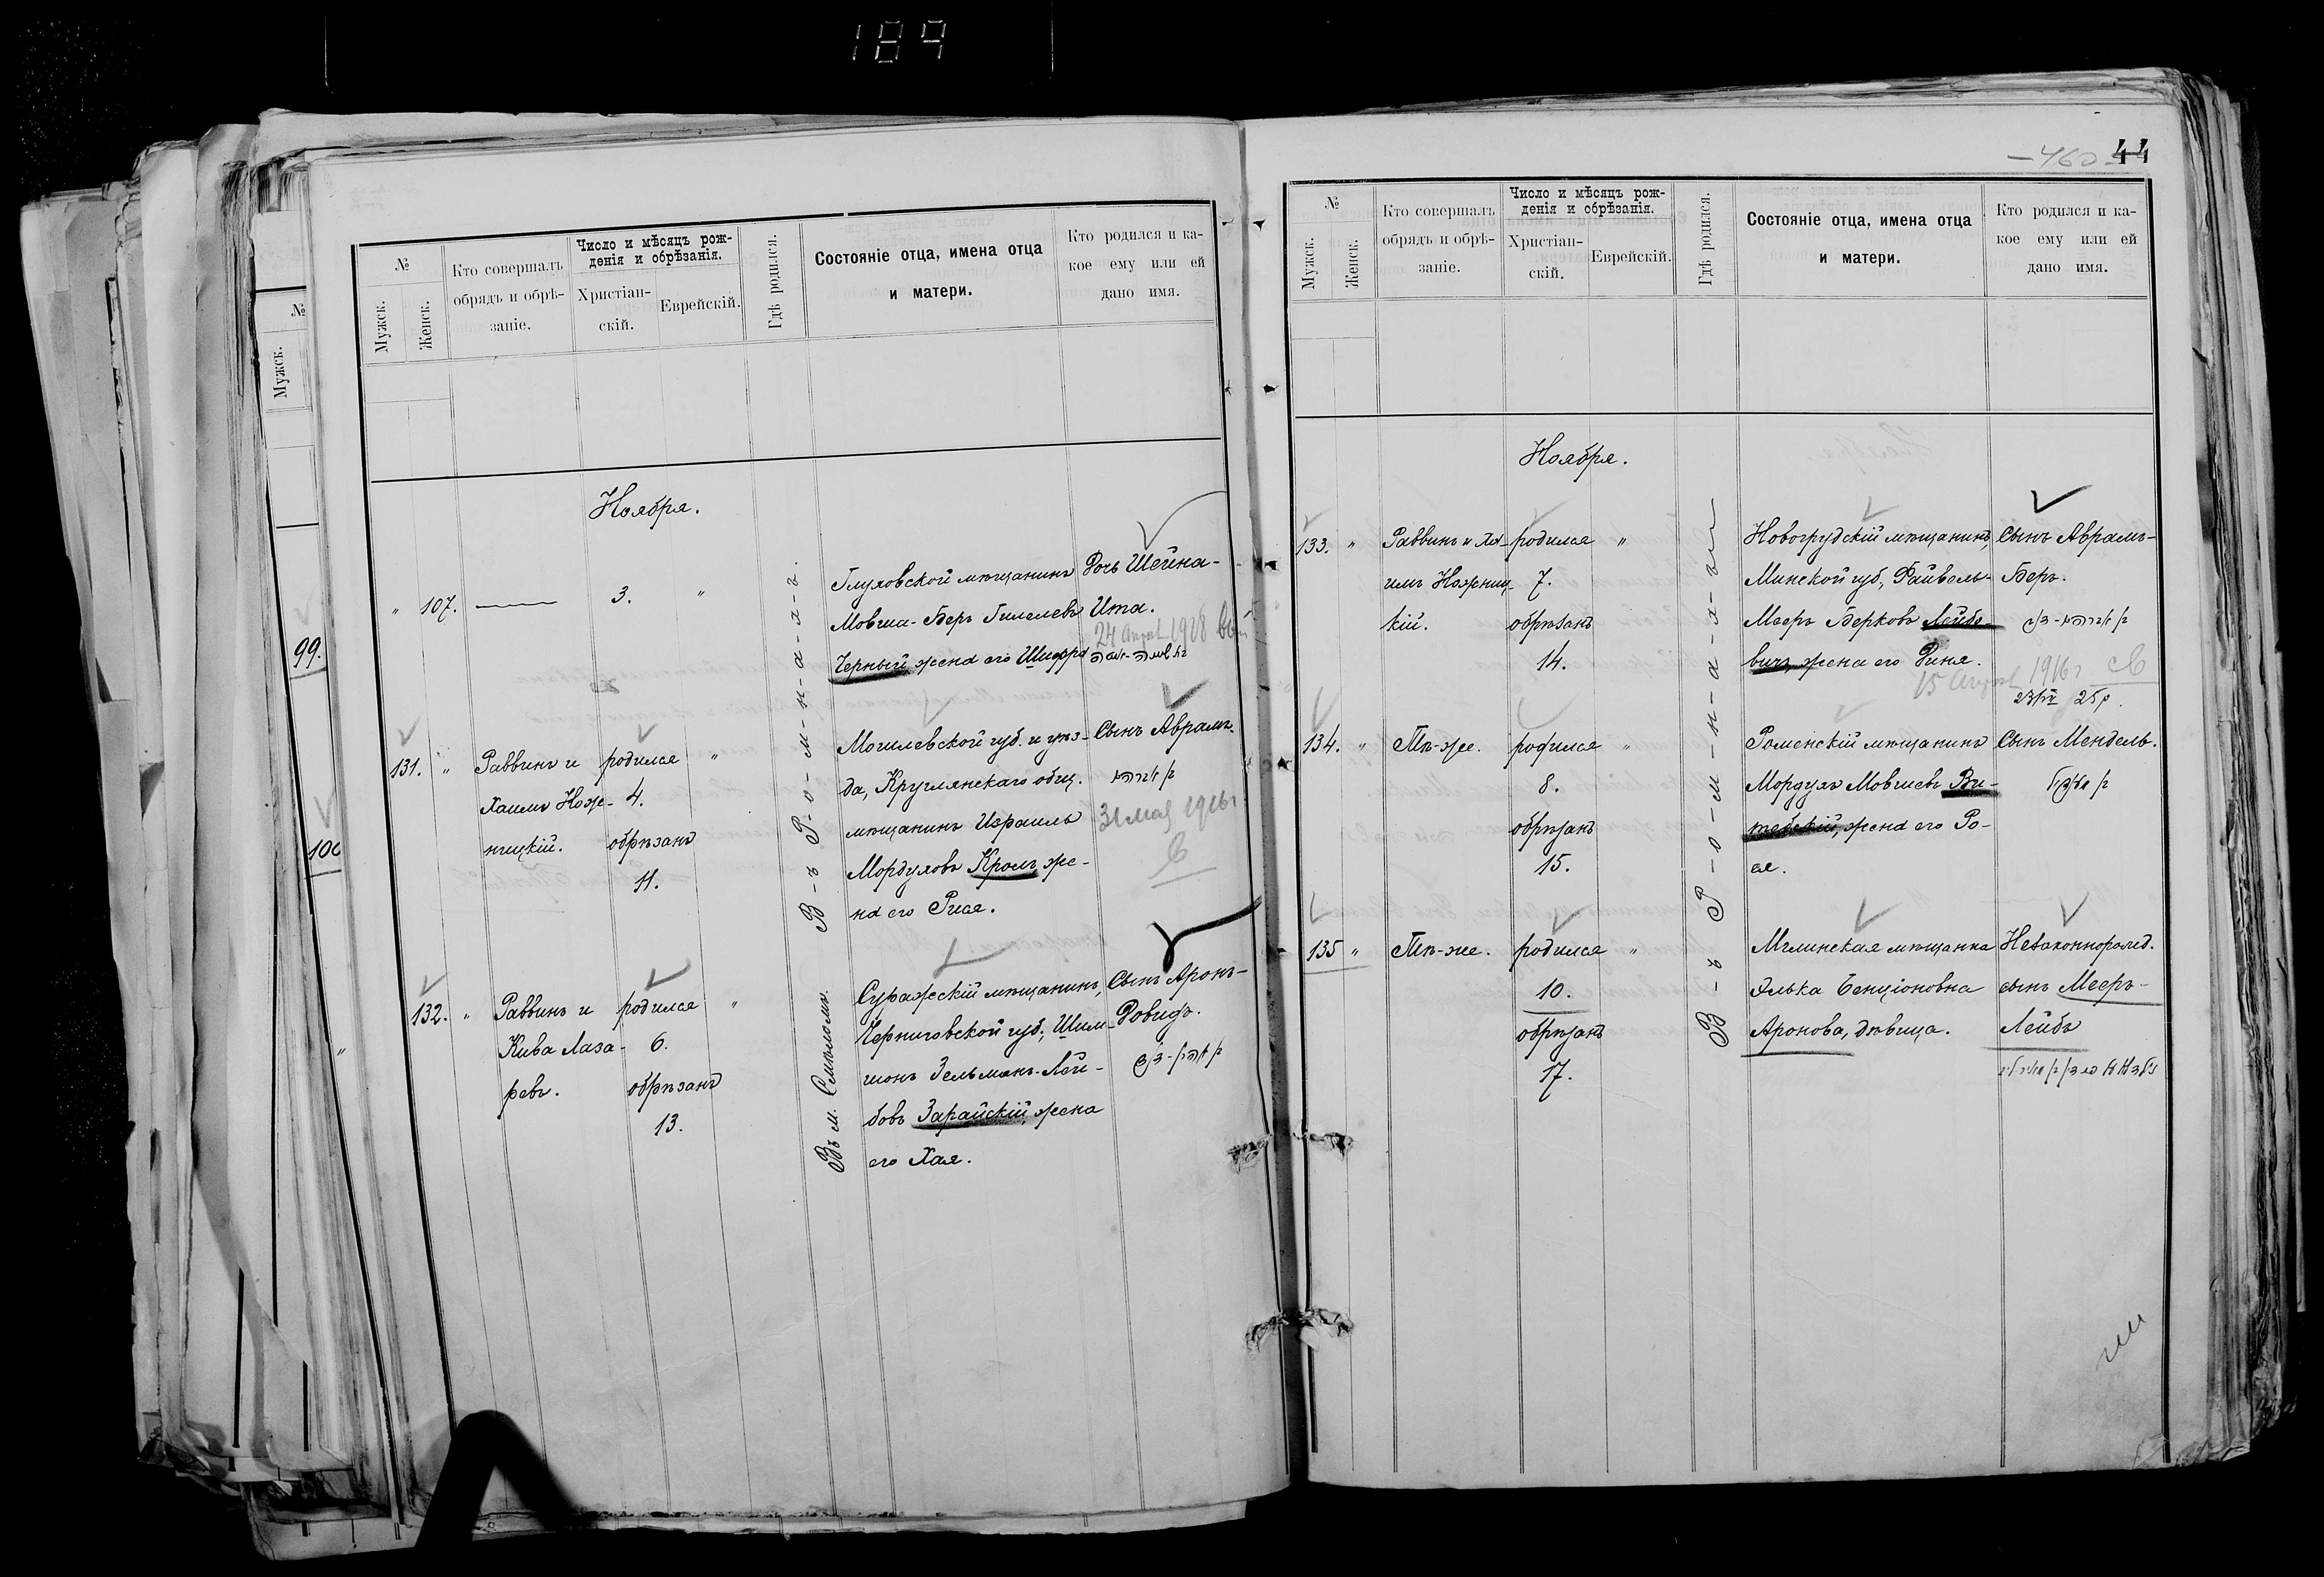 189
№
Мужск.
99.
100
№
Мужск.
Женск.
Кто совершалъ
обрядъ и обрѣ-
заніе.
Число и мѣсяцъ рож-
денія и обрѣзанія.
Христіан-
скій.
Еврейскій.
Гдѣ родился.
Состояніе отца, имена отца
и матери.
Кто родился и ка-
кое ему или ей
дано имя.
Ноября.
" 107. — 3. "
Въ Ромнахъ.
Глуховской мѣщанинъ
Мовша-Беръ Гилелевъ
Черный жена его Шифра
Дочь Шейна-
Ита.
24 1918
131. "
Раввинъ и
Хаимъ Нож-
ницкій.
родился "
4.
обрѣзанъ
11.
Могилевской губ. и уѣз-
да, Круглянскаго общ.
мѣщанинъ Израиль
Мордуховъ Кроль, же-
на его Рися.
Сынъ Абрамъ.
31 мая 1916 г
132. "
Раввинъ и
Кива Лаза-
ревъ.
родился "
6.
обрѣзанъ
13.
Въ м. Смѣломъ.
Суражскій мѣщанинъ,
Черниговской губ., Шим-
шонъ Зельманъ-Лей-
бовъ Зарайскій, жена
его Хая.
Сынъ Аронъ-
Довидъ.
— 460 44
№
Мужск.
Женск.
Кто совершалъ
обрядъ и обрѣ-
заніе.
Число и мѣсяцъ рож-
денія и обрѣзанія.
Христіан-
скій.
Еврейскій.
Гдѣ родился.
Состояніе отца, имена отца
и матери.
Кто родился и ка-
кое ему или ей
дано имя.
Ноября.
133. "
Раввинъ и Ха-
имъ Ножниц-
кій.
родился "
7.
обрѣзанъ
14.
Въ Ромнахъ
Новогрудскій мѣщанинъ,
Минской губ., Файвель-
Мееръ Берковъ Лейбо-
вичъ, жена его Риня.
Сынъ Абрамъ-
Беръ.
15 1916 г
134. "
Тѣ-же.
родился "
8.
обрѣзанъ
15.
Роменскій мѣщанинъ
Мордухъ Мовшевъ Ви-
тебскій, жена его Ро-
ся.
Сынъ Мендель.
135 "
Тѣ-же.
родился "
10.
обрѣзанъ
17.
Мглинская мѣщанка
Элька Бенціоновна
Аронова, дѣвица.
Незаконнорожд.
сынъ Мееръ-
Лейбъ